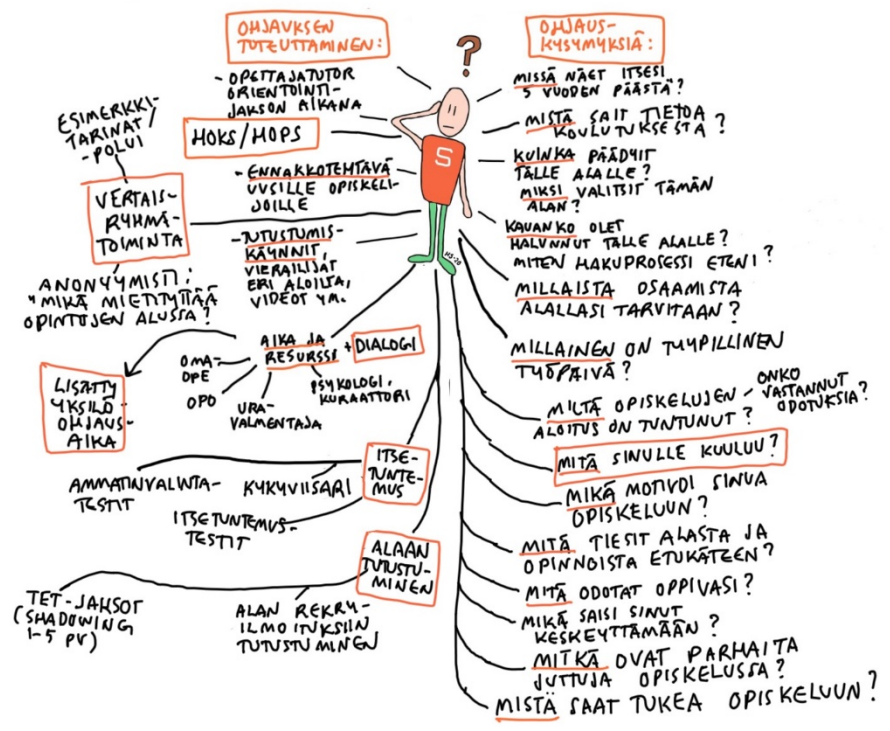 OHJAUKSEN
TOTEUTTAMINEN:
- OPETTAJATUTOR
ORIENTOINTI-
JAKSON AIKANA
HOKS/HOPS
- ENNAKKOTEHTÄVÄ
UUSILLE OPISKELI-
JOILLE
- TUTUSTUMIS-
KÄYNNIT,
VIERAILIJAT
ERI ALOILTA,
VIDEOT YM.
ESIMERKKI-
TARINAT/
-POLUT
VERTAIS-
RYHMÄ-
TOIMINTA
ANONYYMISTI:
"MIKÄ MIETITYTTÄÄ
OPINTOJEN ALUSSA?
AIKA JA
RESURSSI + DIALOGI
OMA-
OPE
OPO
URA-
VALMENTAJA
PSYKOLOGI,
KURAATTORI
LISÄTTY
YKSILÖ-
OHJAUS-
AIKA
ITSE-
TUNTE-
MUS
AMMATINVALINTA-
TESTIT
KYKYVIISARI
ITSETUNTEMUS-
TESTIT
ALAAN
TUTUSTU-
MINEN
TET-JAKSOT
(SHADOWING
1-5 PV)
ALAN REKRY-
ILMOITUKSIIN
TUTUSTUMINEN
?
S
OHJAUS-
KYSYMYKSIÄ:
MISSÄ NÄET ITSESI
5 VUODEN PÄÄSTÄ?
MISTÄ SAIT TIETOA
KOULUTUKSESTA?
KUINKA PÄÄDYIT
TÄLLE ALALLE?
MIKSI VALITSIT TÄMÄN
ALAN?
KAUANKO OLET
HALUNNUT TÄLLE ALALLE?
MITEN HAKUPROSESSI ETENI?
MILLAISTA OSAAMISTA
ALALLASI TARVITAAN?
MILLAINEN ON TYYPILLINEN
TYÖPÄIVÄ?
MILTÄ OPISKELUJEN
ALOITUS ON TUNTUNUT?
ONKO
VASTANNUT
ODOTUKSIA?
MITÄ SINULLE KUULUU?
MIKÄ MOTIVOI SINUA
OPISKELUUN?
MITÄ TIESIT ALASTA JA
OPINNOISTA ETUKÄTEEN?
MITÄ ODOTAT OPPIVASI?
MIKÄ SAISI SINUT
KESKEYTTÄMÄÄN?
MITKÄ OVAT PARHAITA
JUTTUJA OPISKELUSSA?
MISTÄ SAAT TUKEA OPISKELUUN?